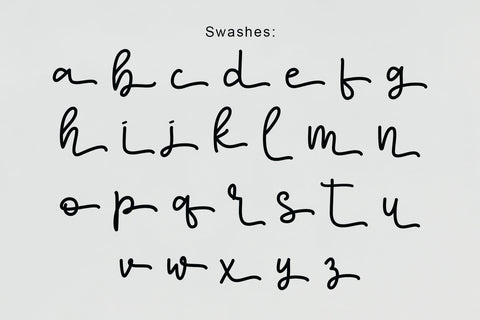 Swashes:
a b c d e f g
h i j k l m n
o p q r s t u
v w x y z